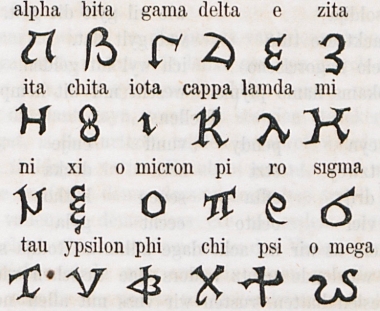 alpha bita gama delta e zita
α β Γ Δ ε ζ
ita chita iota cappa lamda mi
Η θ ι κ λ Μ
ni xi o micron pi ro sigma
Ν ξ ο π ρ σ
tau ypsilon phi chi psi o mega
Τ υ φ χ ψ ω